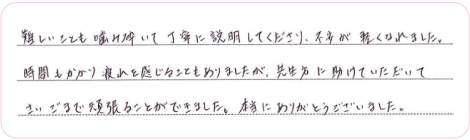 難しいことも噛み砕いて丁寧に説明してくださり、不安が軽くなれました。
時間もかかり疲れを感じることもありましたが、先生方に助けていただいて
さいごまで頑張ることができました。本当にありがとうございました。